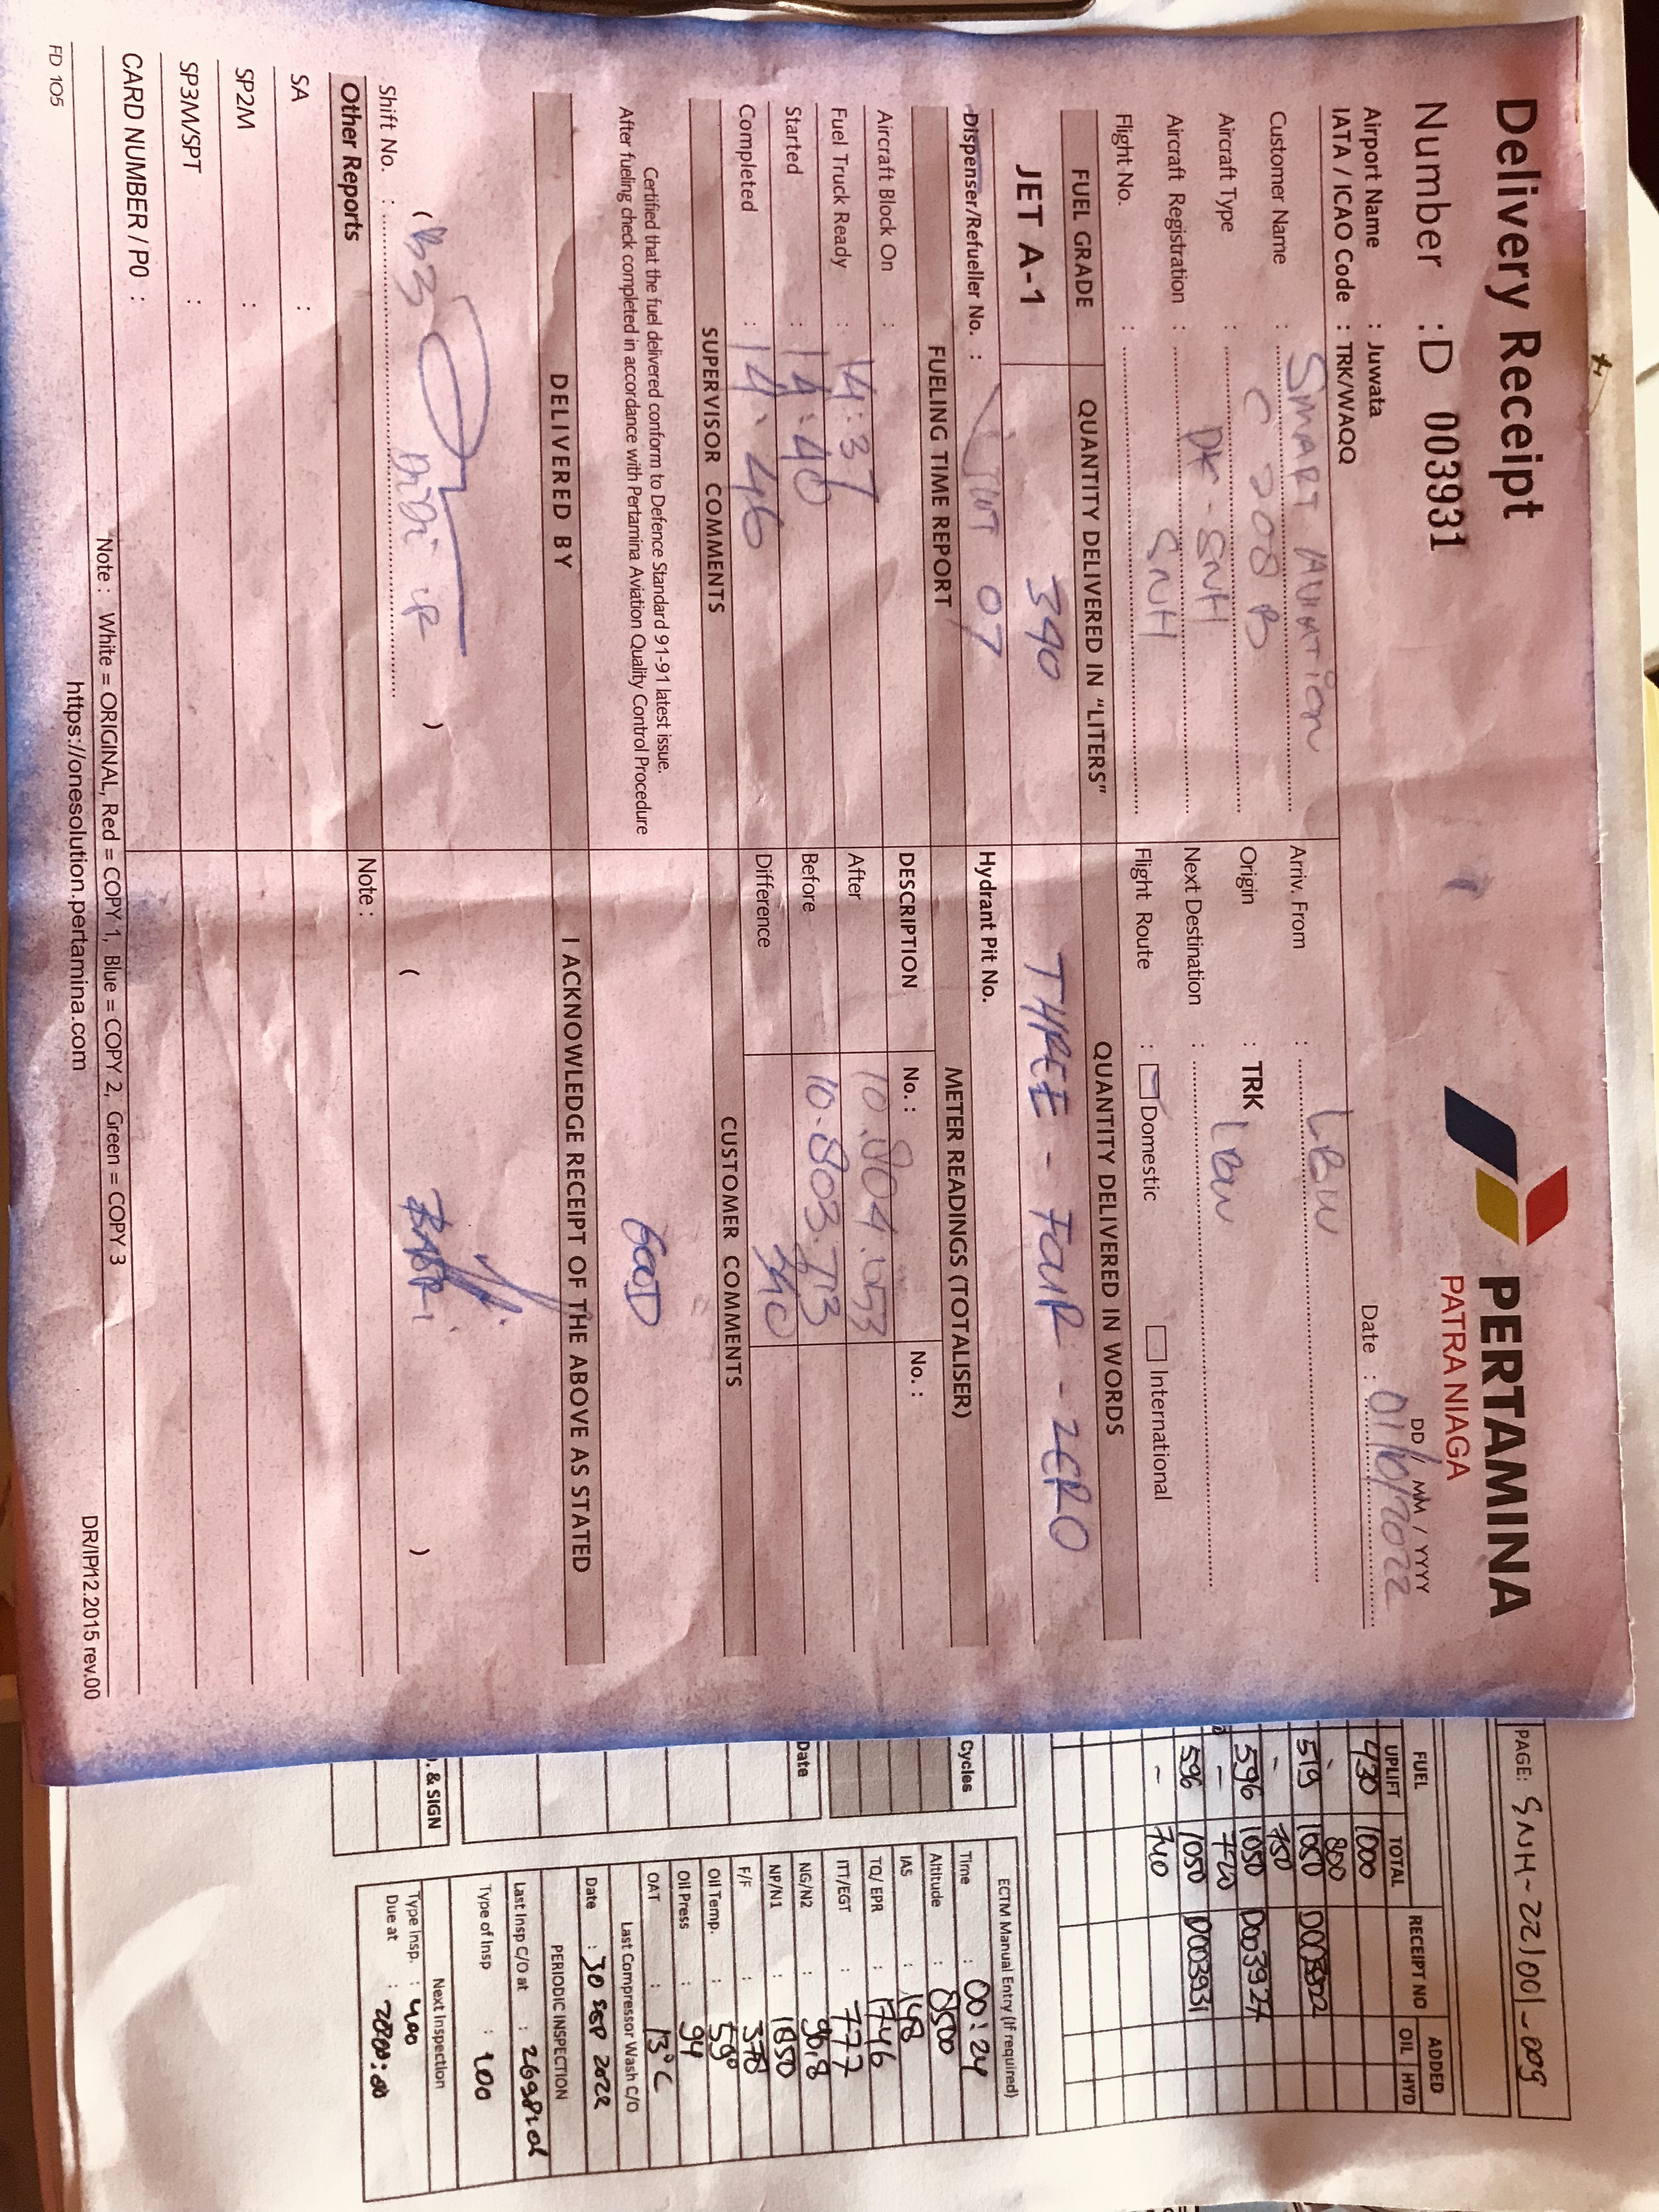 Delivery Receipt
PERTAMINA
PATRA NIAGA
Number : D 003931
DD / MM / YYYY
Date : 01/10/2022
Airport Name : Juwata
IATA / ICAO Code : TRK/WAQQ
Customer Name : SMART AVIATION
Arriv. From : LBW
Aircraft Type : C 208 B
Origin : TRK
Aircraft Registration : PK-SNH
Next Destination : LBW
Flight No. : SNH
Flight Route : Domestic International
FUEL GRADE QUANTITY DELIVERED IN "LITERS" QUANTITY DELIVERED IN WORDS
JET A-1 340 THREE - FOUR - ZERO
Dispenser/Refueller No. : 07
Hydrant Pit No.
FUELING TIME REPORT METER READINGS (TOTALISER)
Aircraft Block On :
DESCRIPTION No. : No. :
Fuel Truck Ready : 14:37
After 10.804.053
Started : 14.40
Before 10.803.713
Completed : 14.46
Difference 340
SUPERVISOR COMMENTS CUSTOMER COMMENTS
Certified that the fuel delivered conform to Defence Standard 91-91 latest issue.
After fueling check completed in accordance with Pertamina Aviation Quality Control Procedure
GOOD
DELIVERED BY I ACKNOWLEDGE RECEIPT OF THE ABOVE AS STATED
Shift No. : ( B3 )
( )
Other Reports Note :
SA :
SP2M :
SP3M/SPT :
CARD NUMBER / PO :
Note : White = ORIGINAL, Red = COPY 1, Blue = COPY 2, Green = COPY 3
https://onesolution.pertamina.com
FD 105
DR/IP/12.2015 rev.00
PAGE: SNH-221001-009
FUEL RECEIPT NO ADDED
UPLIFT TOTAL OIL HYD
430 1000
- 800
519 1050
- 750
596 1050 D003927
- 720
596 1050 D003931
- 740
Cycles
Date
& SIGN
ECTM Manual Entry (If required)
Time : 00:24
Altitude : 8500
IAS : 148
TQ/ EPR : 1746
ITT/EGT : 777
NG/N2 : 98.8
NP/N1 : 1850
F/F : 378
Oil Temp. : 59°
Oil Press : 94
OAT : 13°C
Last Compressor Wash C/O
Date : 30 SEP 2022
PERIODIC INSPECTION
Last Insp C/O at :
Type of Insp : 200
Next Inspection
Type Insp. : 400
Due at :